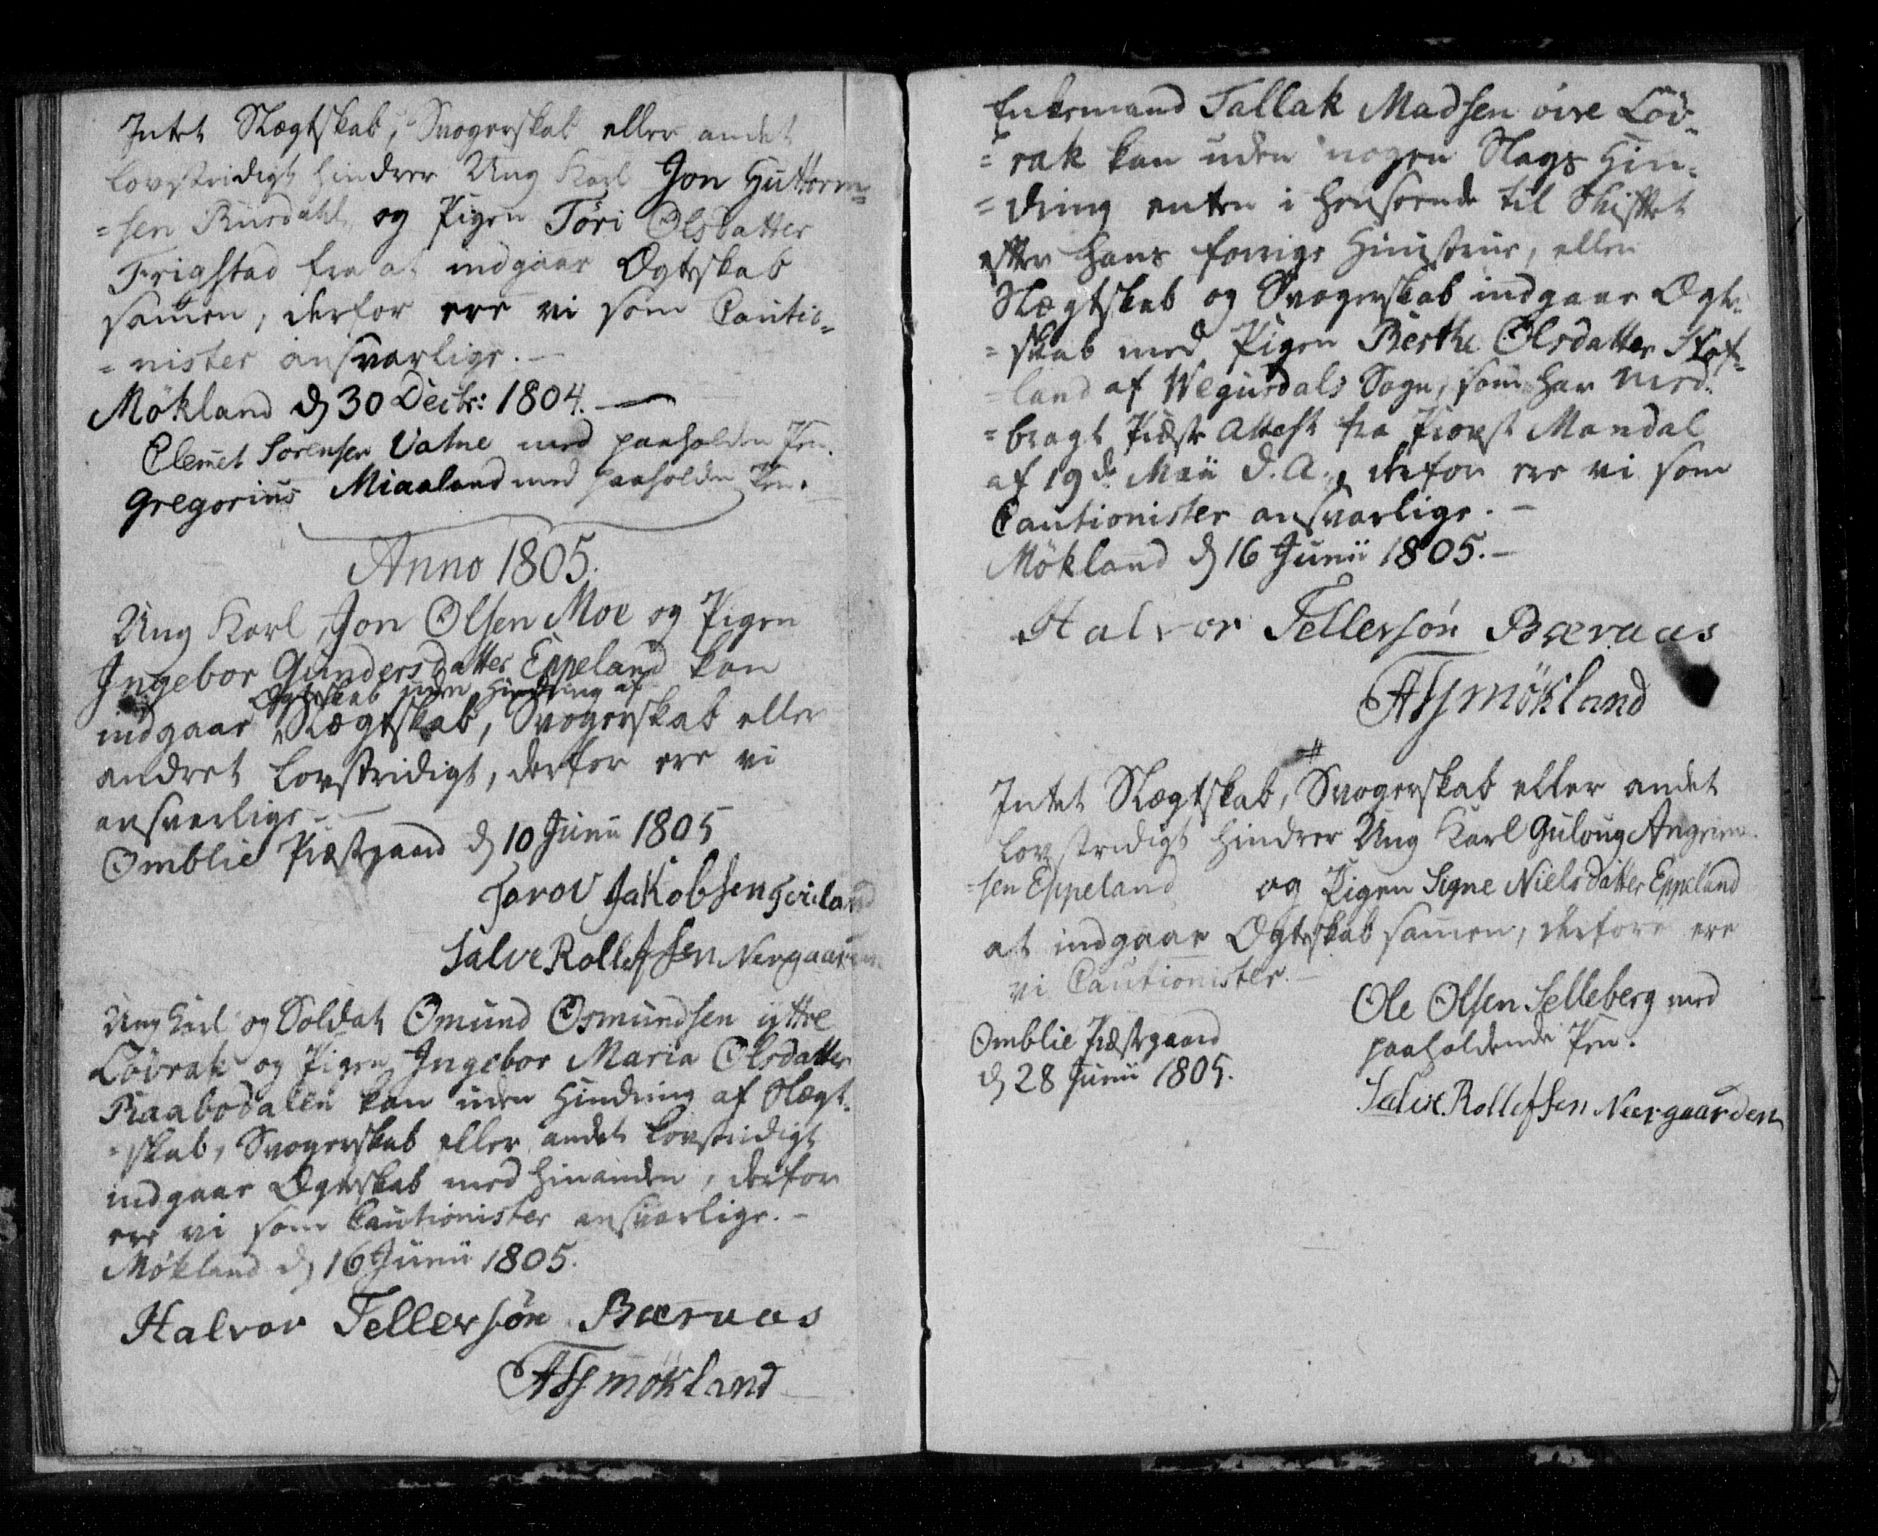 Intet Slægtskab, Svogerskab eller andet
lovstridigt hindrer Ung Karl Jon Guttorm=
=sen Riisdahl og Pigen Töri Olsdatter
Frigstad fra at indgaae Ægteskab
samen, derfor ere vi som Cautio=
=nister ansvarlige. —
Mökland d 30 Decbr: 1804. —
Clemet Sörensen Vatne med paaholden Pen.
Gregorius Miaaland med paaholden Pen.
Anno 1805.
Ung Karl Jon Olsen Moe og Pigen
Ingebor Gundersdatter Eppeland kan
Ægteskab uden Hindring af
indgaae Slægtskab, Svogerskab eller
andret lovstridigt, derfor ere vi
ansvarlige. —
Omblie Præstgaard d 10 Junii 1805
Jakobsen
Salve Rollefsen Nergaarden
Ung Karl og Soldat Omund Osmundsen yttre
Lövrak og Pigen Ingebor Maria Olsdatter
Raabodalen kan uden Hindring af Slægt=
=skab, Svogerskab eller andet lovstridigt
indgaae Ægteskab med hinanden, derfor
ere vi som Cautionister ansvarlige. —
Mökland d 16 Junii 1805.
Halvor Tellersön Bæraas
Mökland
Enkemand Tallak Madsen övre Löv=
=rak kan uden nogen Slags Hin=
=dring enten i Henseende til Skiftet
efter hans forrige Hustrue, eller
Slægtskab og Svogerskab indgaae Ægte=
=skab med Pigen Berthe Olsdatter
=land af Wegusdals Sogn, som har med=
=bragt Præste Attest fra Provst Mandal
af 19de Maii d. A., derfor ere vi som
Cautionister ansvarlige. —
Mökland d 16 Junii 1805. —
Halvor Tellersön Bæraas
Mökland
Intet Slægtskab, Svogerskab eller andet
lovstridigt hindrer Ung Karl Guloug Angrim=
=sen Eppeland og Pigen Signe Nielsdatter Eppeland
at indgaae Ægteskab samen, derfore ere
vi Cautionister. —
Omblie Præstgaard
d 28 Junii 1805.
Ole Olsen Selleberg med
paaholdende Pen.
Salve Rollefsen Neergaarden